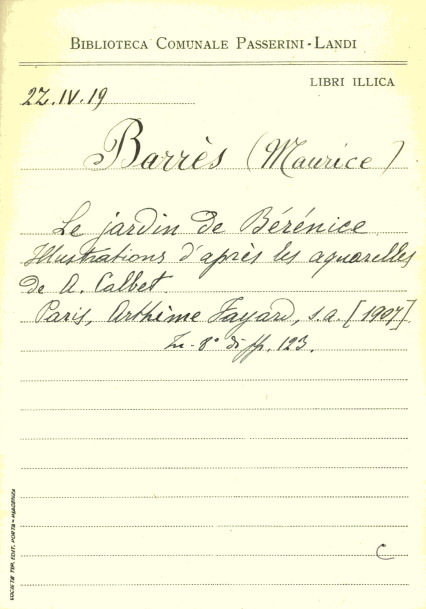 BIBLIOTECA COMUNALE PASSERINI-LANDI
LIBRI ILLICA
22.IV.19
Barrès (Maurice)
Le jardin de Bérénice
Illustrations d'après les aquarelles
de A. Calbet
Paris, Arthème Fayard, s.a. [1907]
In-8° di pp. 123.
C